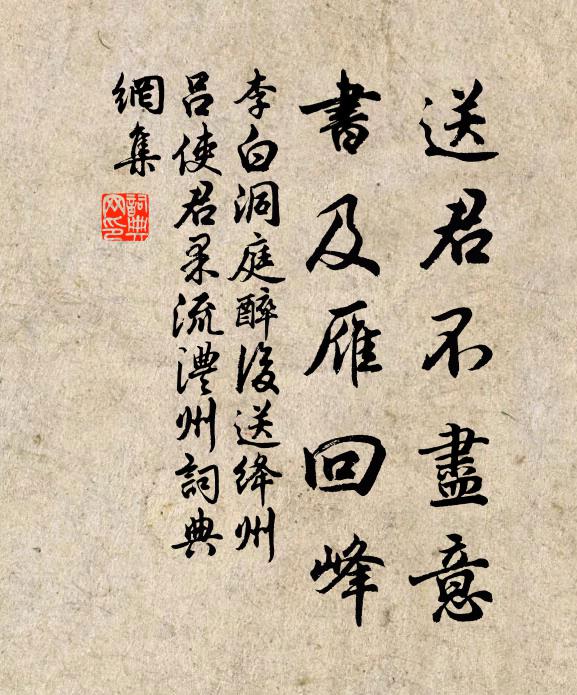 送君不盡意
書及雁回峰
李白洞庭醉後送絳州
呂使君杲流澧州詞典
網集
詞典
網印